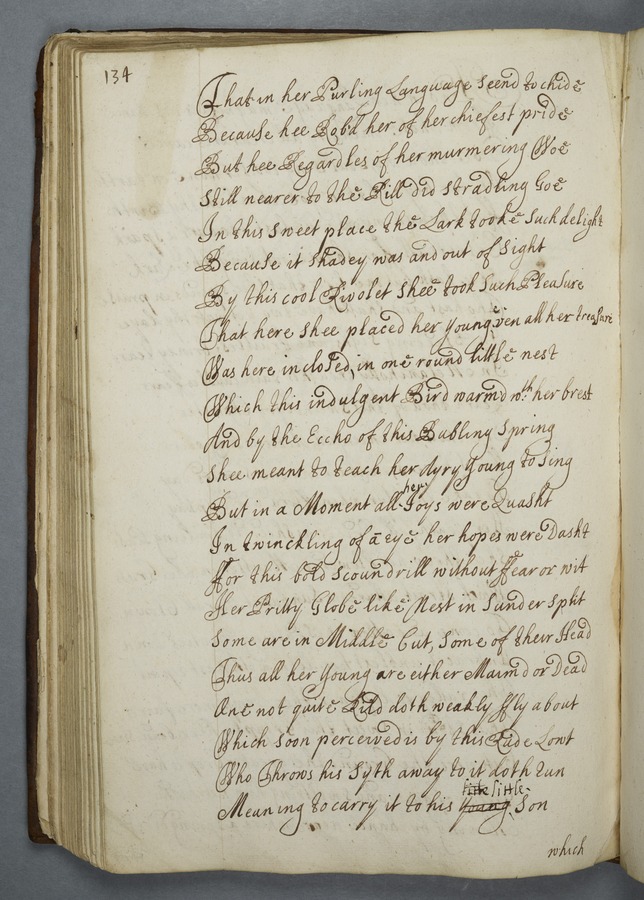 134
That in her Purling Language Seem'd to chide
Because hee Rob'd her of her chiefest pride
But hee Regardles of her murmering Woe
Still nearer to the Rill did Stradling Goe
In this Sweet place the Lark tooke Such delight
Because it Shadey was and out of Sight
By this cool Rivolet Shee took Such Pleasure
That here Shee placed her young, even all her treasure
Was here inclosed, in one round little nest
Which this indulgent Bird warm'd wth her brest
And by the Eccho of this Babling Spring
Shee meant to teach her Ayry young to Sing
But in a Moment all her Joys were Quasht
In twinckling of a eye her hopes were Dasht
Ffor this bold Scoundrill without Ffear or wit
Her Pritty Globe like Nest in Sunder Split
Some are in Middle Cut, Some of their Head
Thus all her Young are either Maim'd or Dead
One not quite Kil'd doth weakly Ffly about
Which Soon perceived is by this Rude Lowt
Who Throws his Syth away to it doth run
Meaning to carry it to his young little Son
which